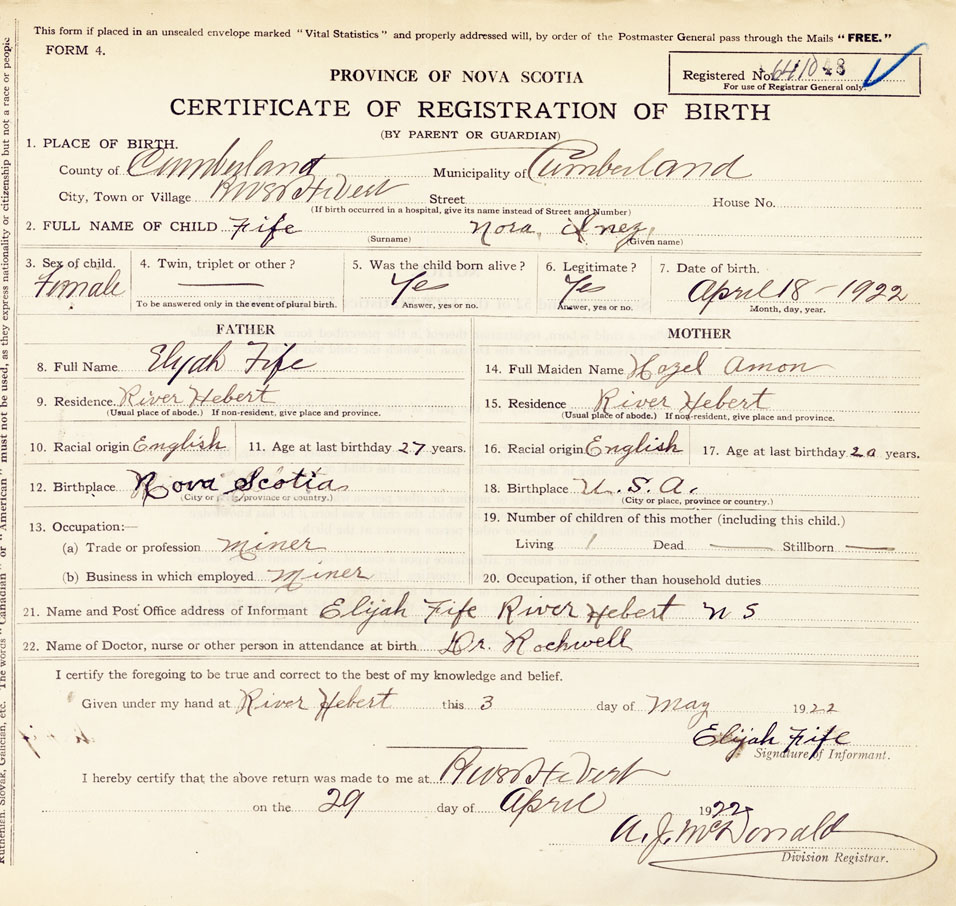 This form if placed in an unsealed envelope marked "Vital Statistics" and properly addressed will, by order of the Postmaster General pass through the Mails "FREE."
FORM 4.
PROVINCE OF NOVA SCOTIA
Registered No. 641048
For use of Registrar General only.
CERTIFICATE OF REGISTRATION OF BIRTH
(BY PARENT OR GUARDIAN)
1. PLACE OF BIRTH.
County of Cumberland Municipality of Cumberland
City, Town or Village River Hebert Street House No.
(If birth occurred in a hospital, give its name instead of Street and Number)
2. FULL NAME OF CHILD Fife Nora Inez
(Surname) (Given name)
3. Sex of child. 4. Twin, triplet or other? 5. Was the child born alive? 6. Legitimate? 7. Date of birth.
Female Yes Yes April 18 - 1922
To be answered only in the event of plural birth. Answer, yes or no. Answer, yes or no. Month, day, year.
FATHER
8. Full Name Elijah Fife
9. Residence River Hebert
(Usual place of abode.) If non-resident, give place and province.
10. Racial origin English 11. Age at last birthday 27 years.
12. Birthplace Nova Scotia
(City or place, province or country.)
13. Occupation:—
(a) Trade or profession miner
(b) Business in which employed Miner
MOTHER
14. Full Maiden Name Hazel Amon
15. Residence River Hebert
(Usual place of abode.) If non-resident, give place and province.
16. Racial origin English 17. Age at last birthday 20 years.
18. Birthplace U.S.A.
(City or place, province or country.)
19. Number of children of this mother (including this child.)
Living 1 Dead — Stillborn —
20. Occupation, if other than household duties
21. Name and Post Office address of Informant Elijah Fife River Hebert N S
22. Name of Doctor, nurse or other person in attendance at birth Dr. Rockwell
I certify the foregoing to be true and correct to the best of my knowledge and belief.
Given under my hand at River Hebert this 3 day of May 1922
Elijah Fife
Signature of Informant.
I hereby certify that the above return was made to me at River Hebert
on the 29 day of April 1922
A. J. McDonald
Division Registrar.
Ruthenian, Slovak, Galician, etc. The words "Canadian" or "American" must not be used, as they express nationality or citizenship but not a race or people